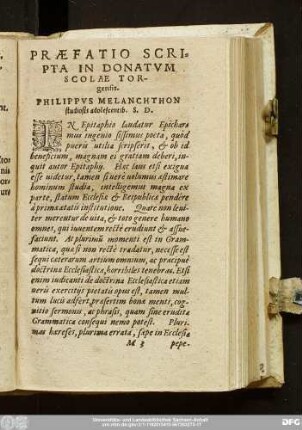 PRÆFATIO SCRI-
PTA IN DONATVM
SCOLAE TOR-
gensis.
PHILIPPVS MELANCHTHON
studiosis adolescentib. S. D.
IN Epitaphio laudatur Epichar
mus ingenio sissimus poeta, quòd
pueris utilia scripserit, & ob id
beneficium, magnam ei gratiam deberi, in-
quit autor Epitaphij. Hæc laus etsi exigua
esse uidetur, tamen si uerè uolumus æstimare
hominum studia, intelligemus magna ex
parte, statum Ecclesiæ & Reipublicæ pendere
à prima ætatis institutione. Quare non leui-
ter merentur de uita, & toto genere humano
omnes, qui iuuentem rectè erudiunt & assue-
faciunt. At plurimũ momenti est in Gram-
matica, quæ si non rectè tradatur, necesse est
sequi cæterarum artium omnium, ac præcipuè
doctrinæ Ecclesiasticæ, horribiles tenebras. Etsi
enim iudicanti de doctrina Ecclesiastica etiam
uerū exercitijs pietatis opus est, tamen mul-
tum lucis adfert, præsertim bonæ menti, cog-
nitio sermonis, ac phrasis, quam sine erudita
Grammatica consequi nemo potest. Pluri-
mæ hæreses, plurima errata, sæpe in Ecclesia
M 3 pepe-